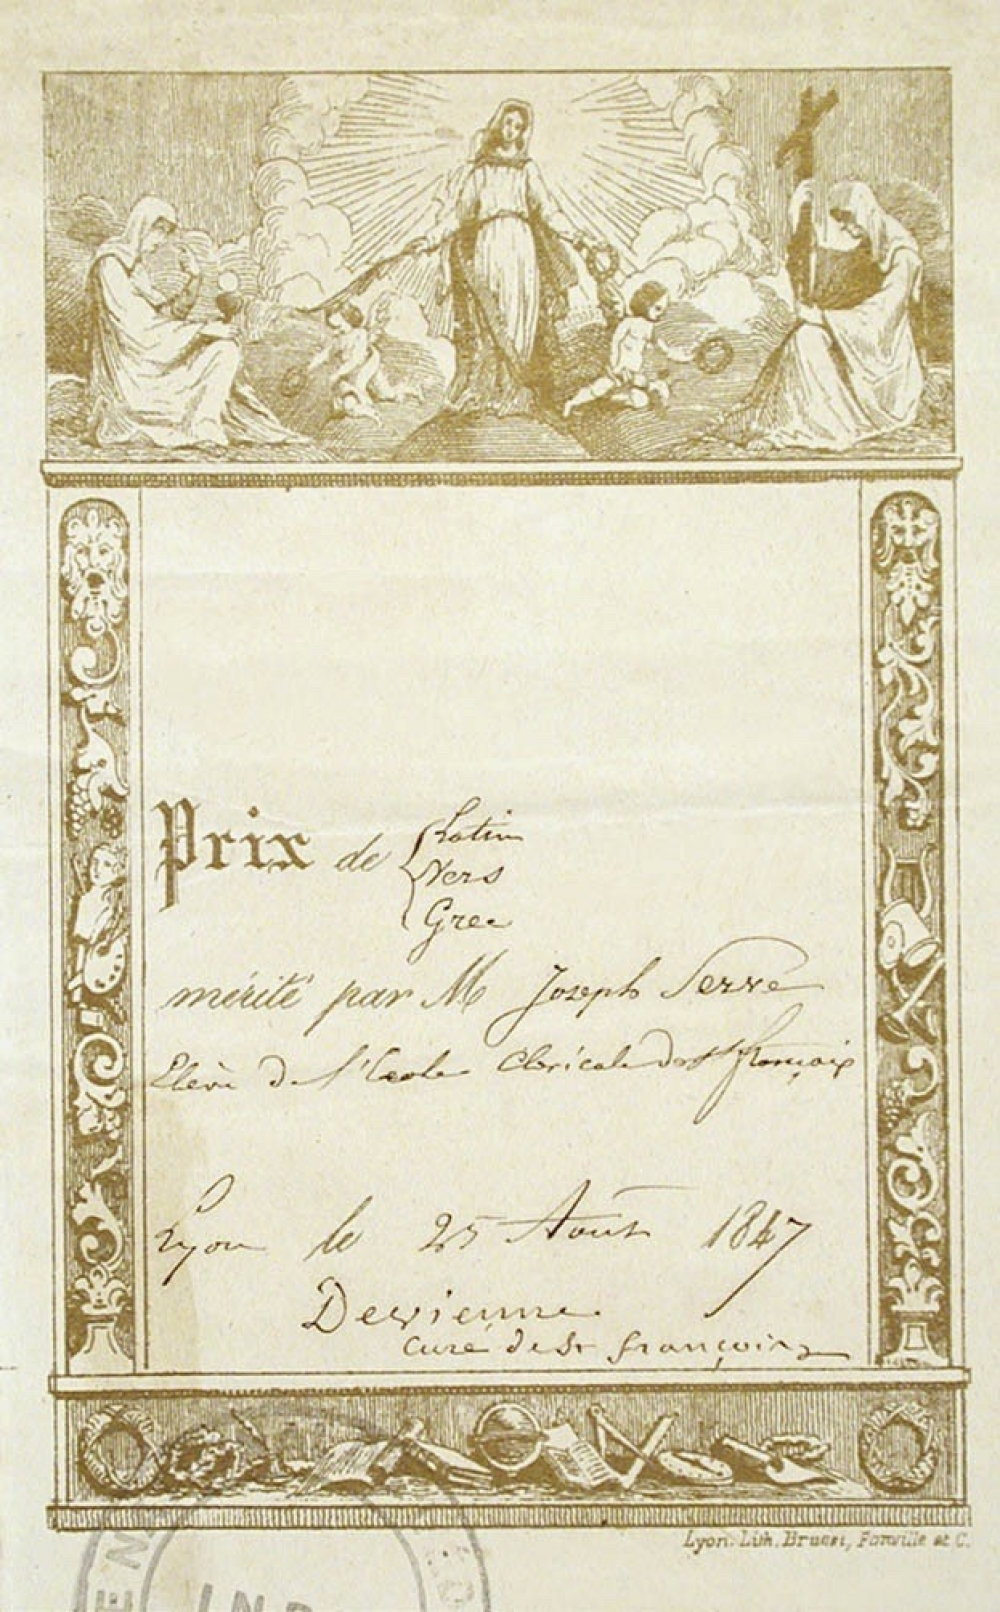 Prix de Latin
Vers
Grec
mérité par M Joseph Serre
Elève de l'Ecole Cléricale de St françois
Lyon le 25 Août 1847
Devienne
curé de St françois
Lyon. Lith. Brunet, Fonville et C.
I.N.R